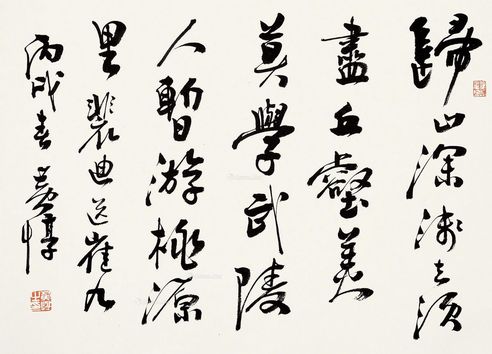 歸山深淺去須
盡丘壑美
莫學武陵
人暫游桃源
里裴迪送崔九
丙戌春黃惇